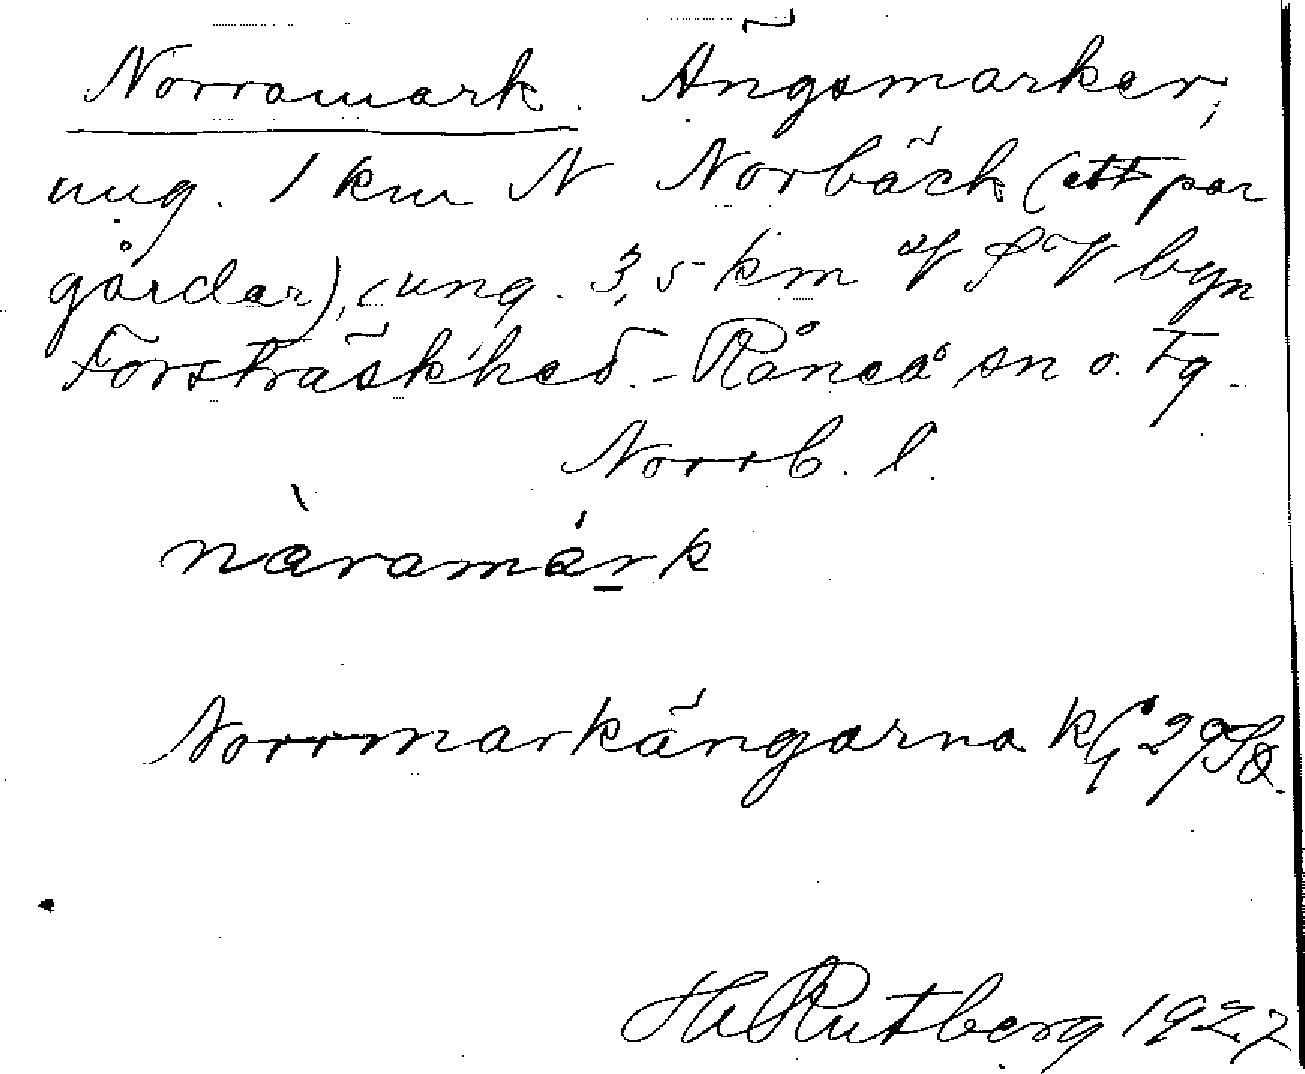 Norramark. Ängsmarker,
ung. 1 km N Norbäck (ett par
gårdar), ung. 3,5 km V S V byn
Forsträskhed. - Råneå sn o. tg.
Norrb. l.
nàramárk
Norrmarkängarna
H Rutberg 1927